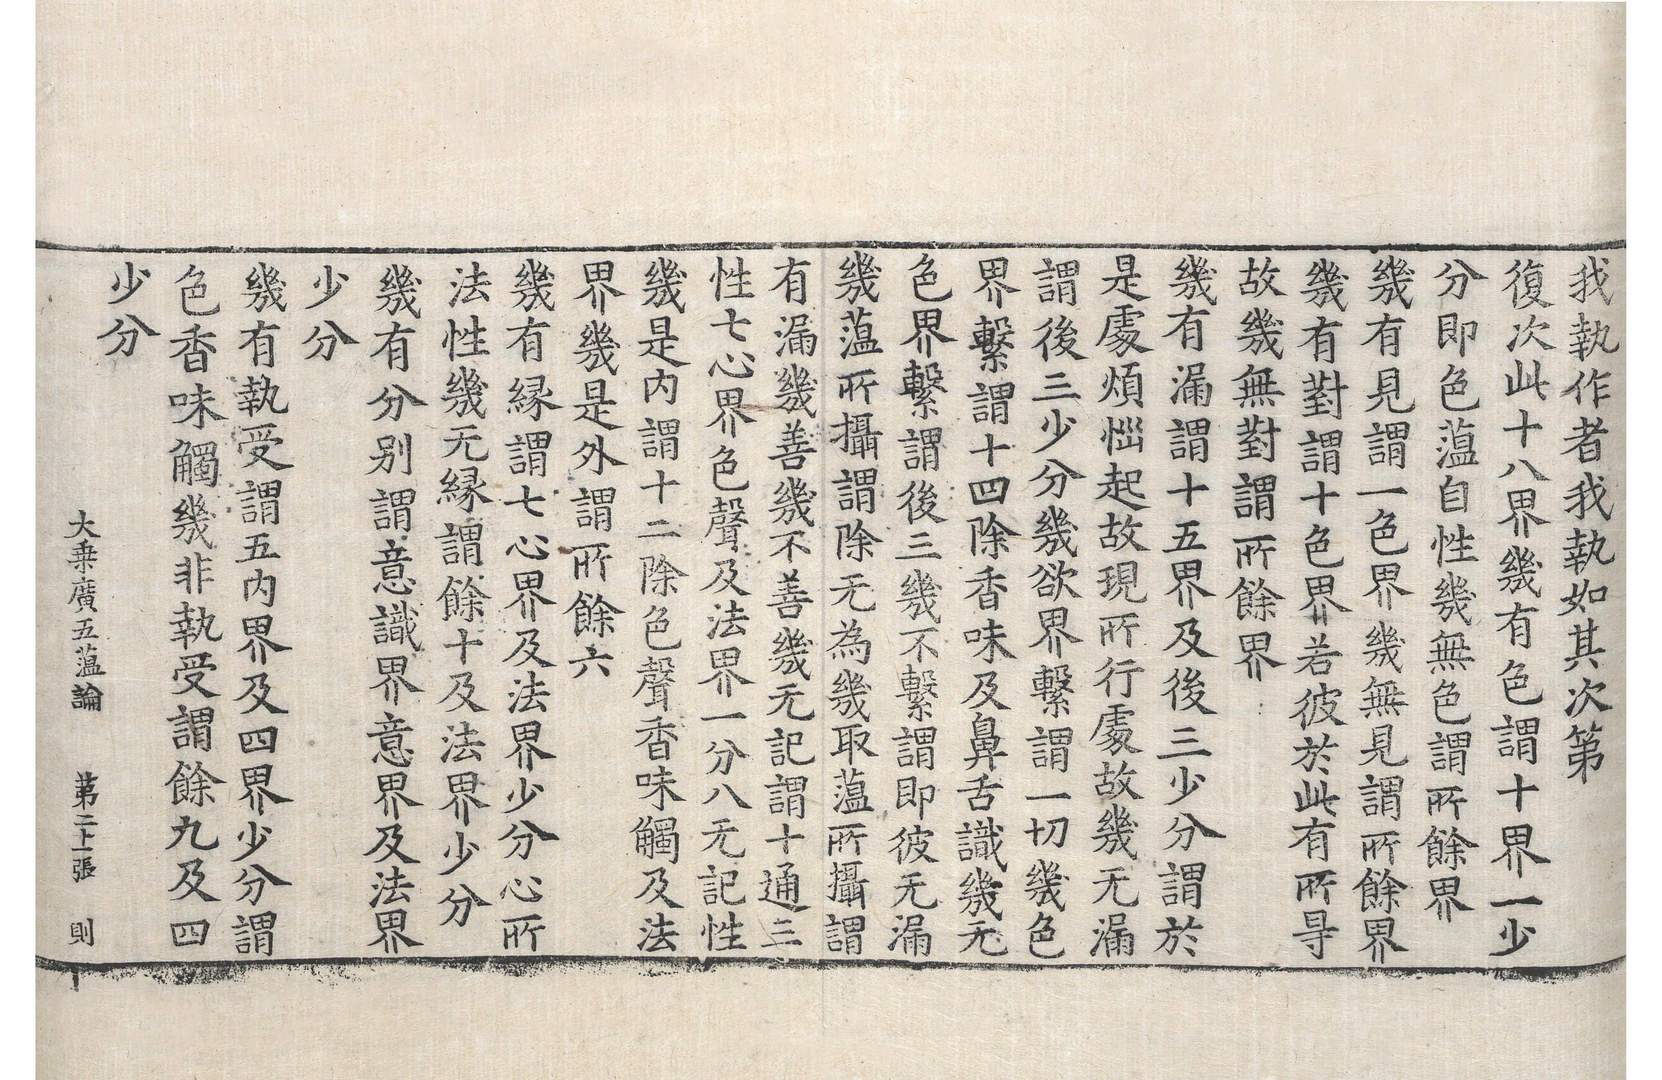 我執作者我執如其次第
復次此十八界幾有色謂十界一少
分即色蕰自性幾無色謂所餘界
幾有見謂一色界幾無見謂所餘界
幾有對謂十色界若彼於此有所㝵
故幾無對謂所餘界
幾有漏謂十五界及後三少分謂於
是處煩惱起故現所行處故幾无漏
謂後三少分幾欲界繫謂一切幾色
界繫謂十四除香味及鼻舌識幾无
色界繫謂後三幾不繫謂即彼无漏
幾蕰所攝謂除无為幾取蕰所攝謂
有漏幾善幾不善幾无記謂十通三
性七心界色聲及法界一分八无記性
幾是内謂十二除色聲香味觸及法
界幾是外謂所餘六
幾有縁謂七心界及法界少分心所
法性幾无縁謂餘十及法界少分
幾有分别謂意識界意界及法界
少分
幾有執受謂五内界及四界少分謂
色香味觸幾非執受謂餘九及四
少分
大乗廣五蕰論 第二十一張 則